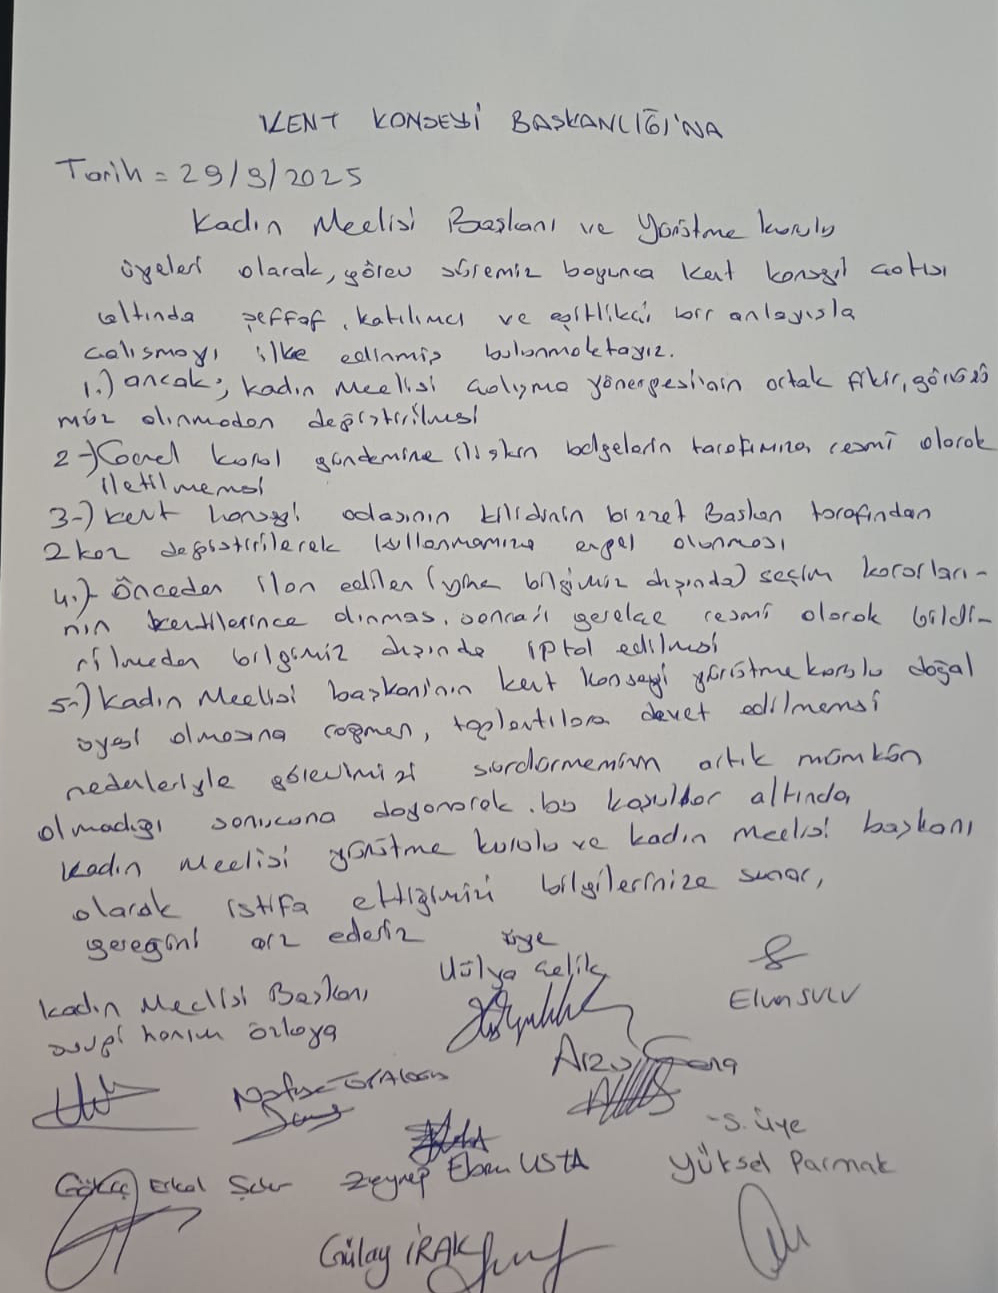 KENT KONSEYİ BAŞKANLIĞI'NA
Tarih = 29/9/2025
Kadın Meclisi Başkanı ve Yürütme kurulu
üyeleri olarak, görev süremiz boyunca kent konseyi çatısı
altında şeffaf, katılımcı ve eşitlikçi bir anlayışla
çalışmayı ilke edinmiş bulunmaktayız.
1.) ancak; kadın Meclisi çalışma yönergesinin ortak fikir, görüşü
müz alınmadan değiştirilmesi
2-) Genel kurul gündemine ilişkin belgelerin tarafımıza resmî olarak
iletilmemesi
3-) kent konseyi odasının kilidinin bizzat Başkan tarafından
2 kez değiştirilerek kullanmamıza engel olunması
4.) Önceden ilan edilen (yine bilgimiz dışında) seçim kararları-
nın kendilerince alınması, sonra gerekçe resmi olarak bildi-
rilmeden bilgimiz dışında iptal edilmesi
5-) Kadın Meclisi başkanının kent konseyi yürütme kurulu doğal
üyesi olmasına rağmen, toplantılara davet edilmemesi
nedenleriyle görevimizi sürdürmemizin artık mümkün
olmadığı sonucuna dayanarak, bu koşullar altında,
Kadın Meclisi yürütme kurulu ve kadın meclisi başkanı
olarak istifa ettiğimizi bilgilerinize sunar,
gereğini arz ederiz
üye
Hülya Çelik
Elvan SULU
Kadın Meclisi Başkanı
hanım Özkaya
Arzu
Nafise
-S. Üye
Yüksel Parmak
Gökçe Erkal
Zeynep Eban USTA
Gülay IRAK